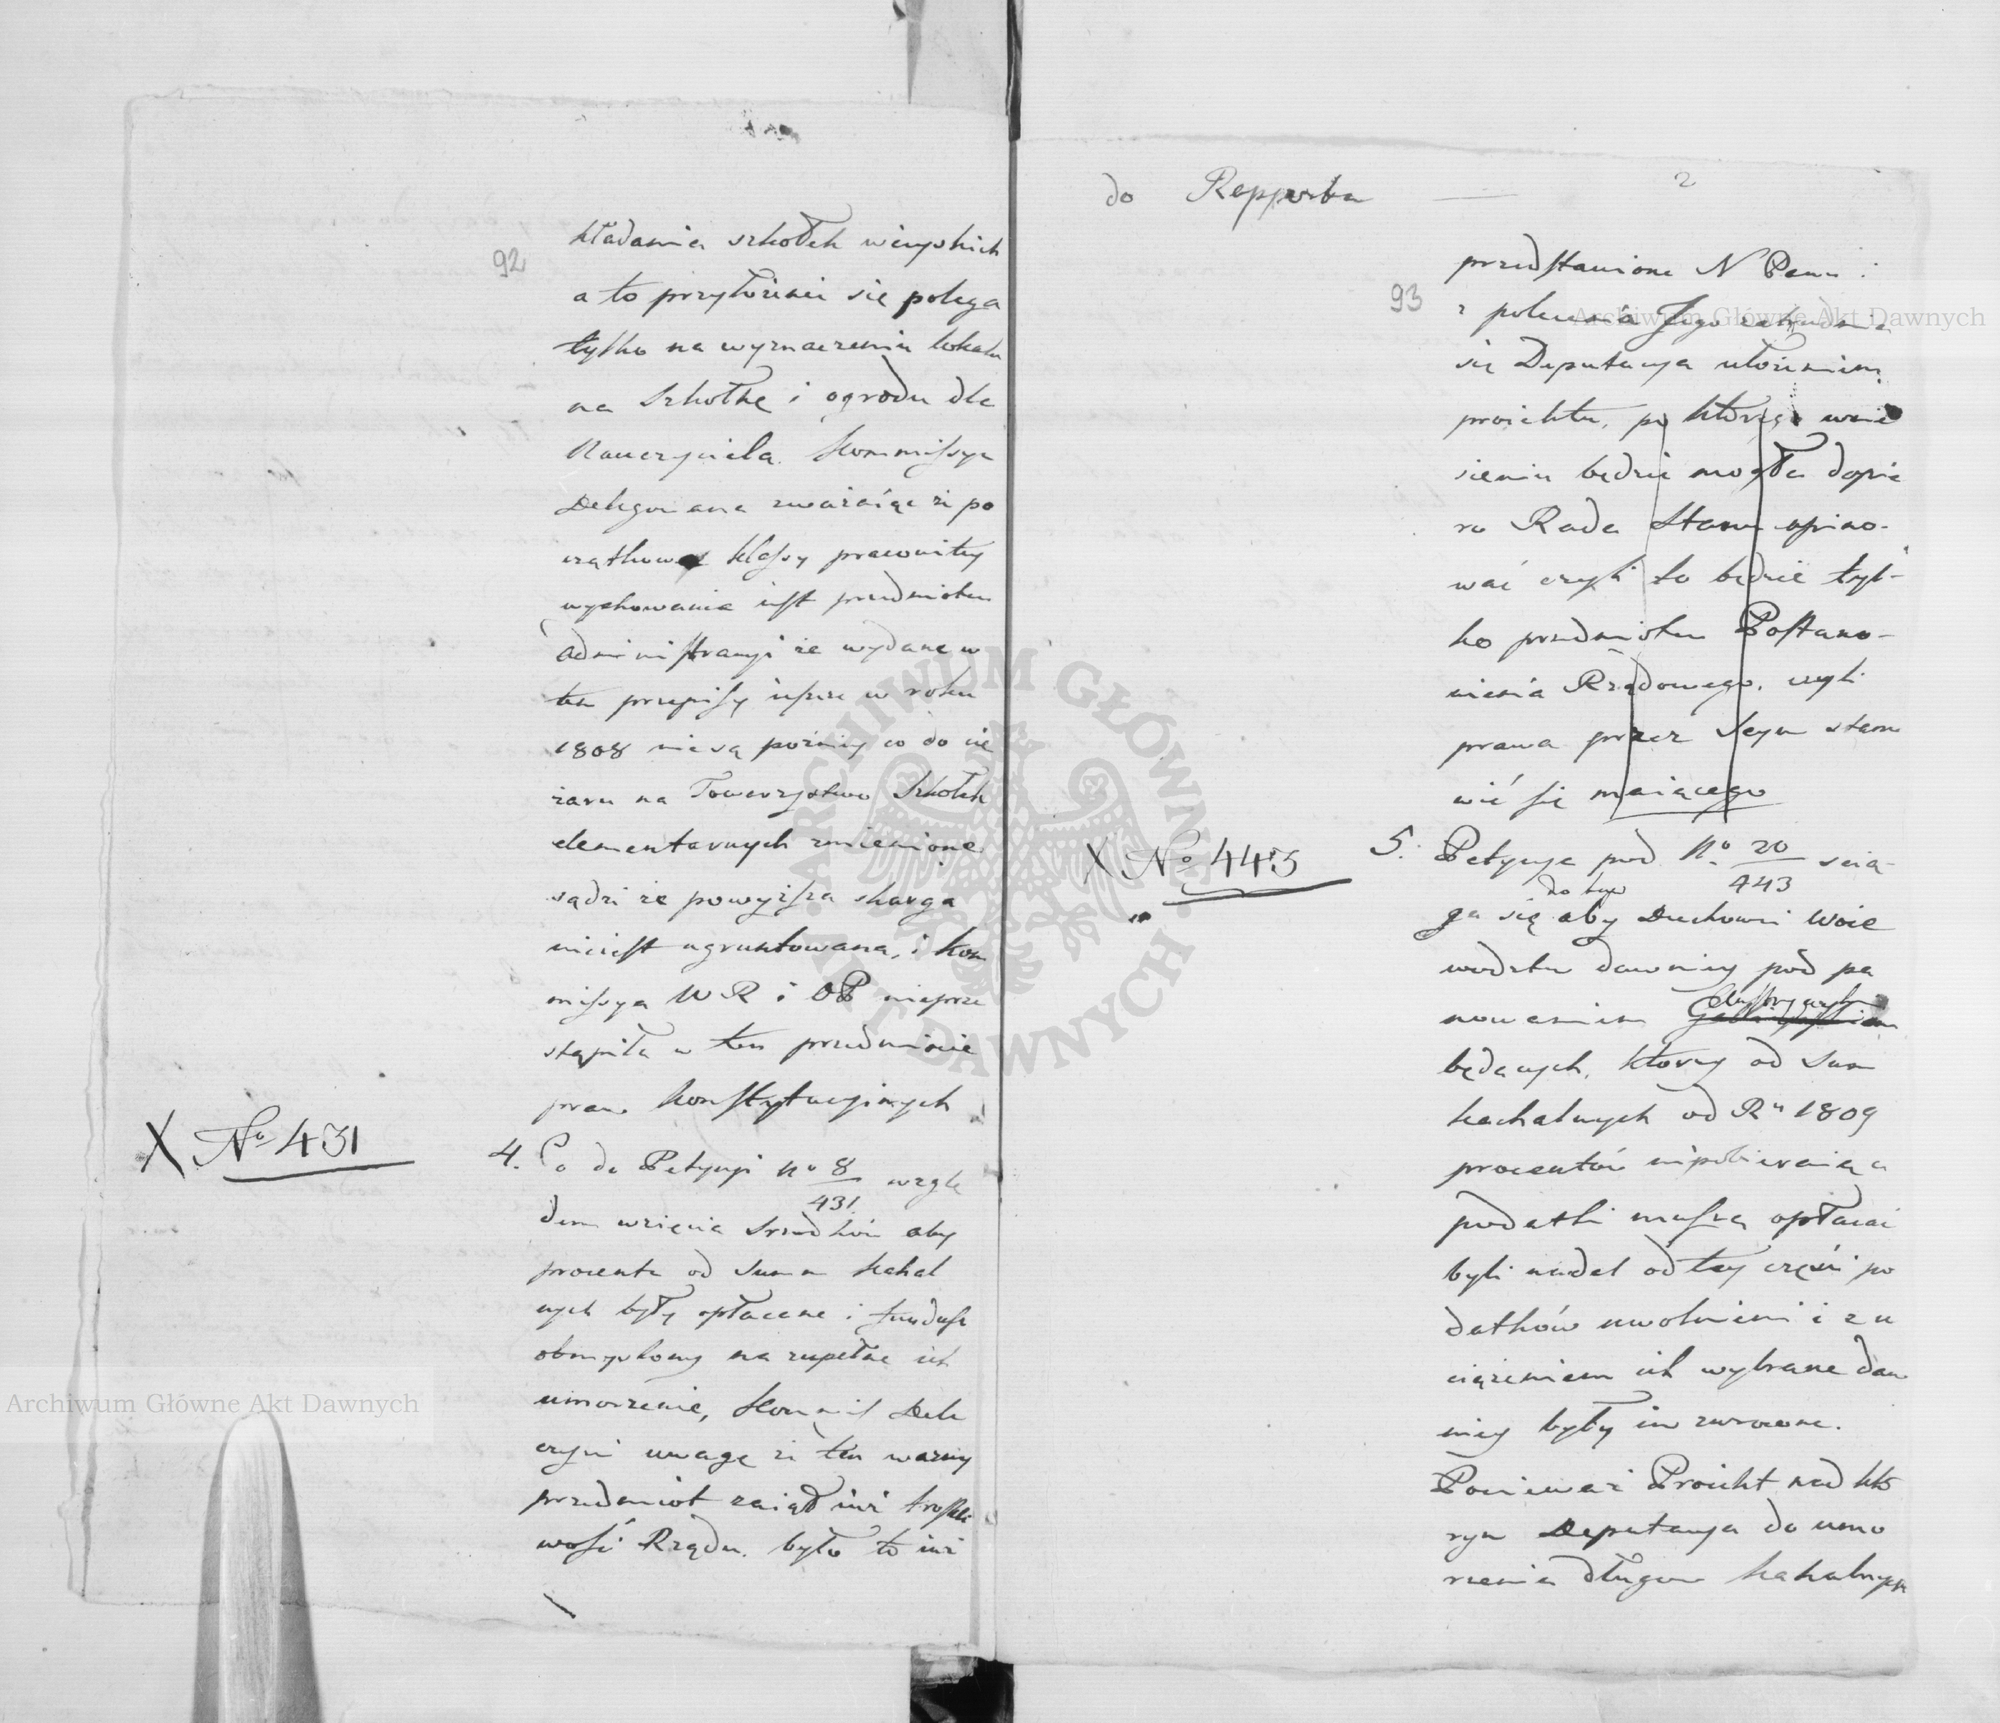 92
kładania szkołek wieyskich
a to przyłożenie się polega
tylko na wyznaczeniu lokalu
na Szkołkę i ogrodu dla
Nauczyciela. Kommissya
Delegowana zważaiąc iż po
czątkowe klassy pracowitey
wychowania iest przedmiotem
administracyi że wydane w
tem przepisy ieszcze w roku
1808 nie są poźniey co do cię
żaru na Towarzystwo Szkołek
elementarnych zmienione
sądzi że powyższa skarga
nieiest ugruntowana, i Kom
missya W R i OP nieprze
stąpiła w tem przedmiocie
praw Konstytucyinych
X No 431
4. Co do Petycyi No 8/431 wzglę
dem wzięcia srzodków aby
procenta od Summ Kahal
nych były opłacane i fundusz
obmyślony na zupełne ich
umorzenie, Kommis Dele
czyni uwagę iż ten ważny
przedmiot zaiął iuż troskli
wość Rządu. było to iuż
do Rapportu
2
93
przedstawione N Panu i
z polecenia Jego zatrudnia
się Deputacya ułożeniem
proiektu, po którego wnie
sieniu będzie mogła dopie
ro Rada Stanu opino-
wać czyli to będzie tyl-
ko przedmiotem Postano-
wienia Rządowego, czyli
prawa przez Seym stano
wić się maiącego
X No 443
5. Petycya pod No 20/443 ścią-
do tego
ga się aby Duchowni Woie
wodztw dawniey pod pa
nowaniem
Austryackim
będących, którzy od Summ
kachalnych od Ru 1809
procentów niepobieraiąc
podatki muszą opłacać
byli nadal od tey części po
datków uwolnieni i z u
ciążeniem ich wybrane daw
niey były im zwrócone.
Ponieważ Proiekt nad któ
rym Deputacya do umo
rzenia długow Kahalnych
Archiwum Główne Akt Dawnych
Archiwum Główne Akt Dawnych
ARCHIWUM GŁÓWNE AKT DAWNYCH